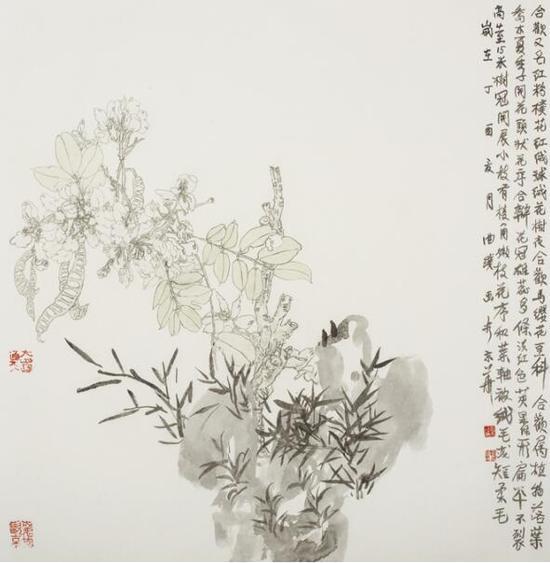 合歡又名红粉樸花红绒球绒花樹夜合歡马缨花豆科 合歡属植物落葉
喬木夏季開花頭狀花序合瓣花冠雄蕊多條淡红色荚果條形扁平不裂
高至15米樹冠開展小枝有棱角嫩枝花序和葉軸被绒毛或短柔毛
歲在丁酉亥月曲璞画於京華